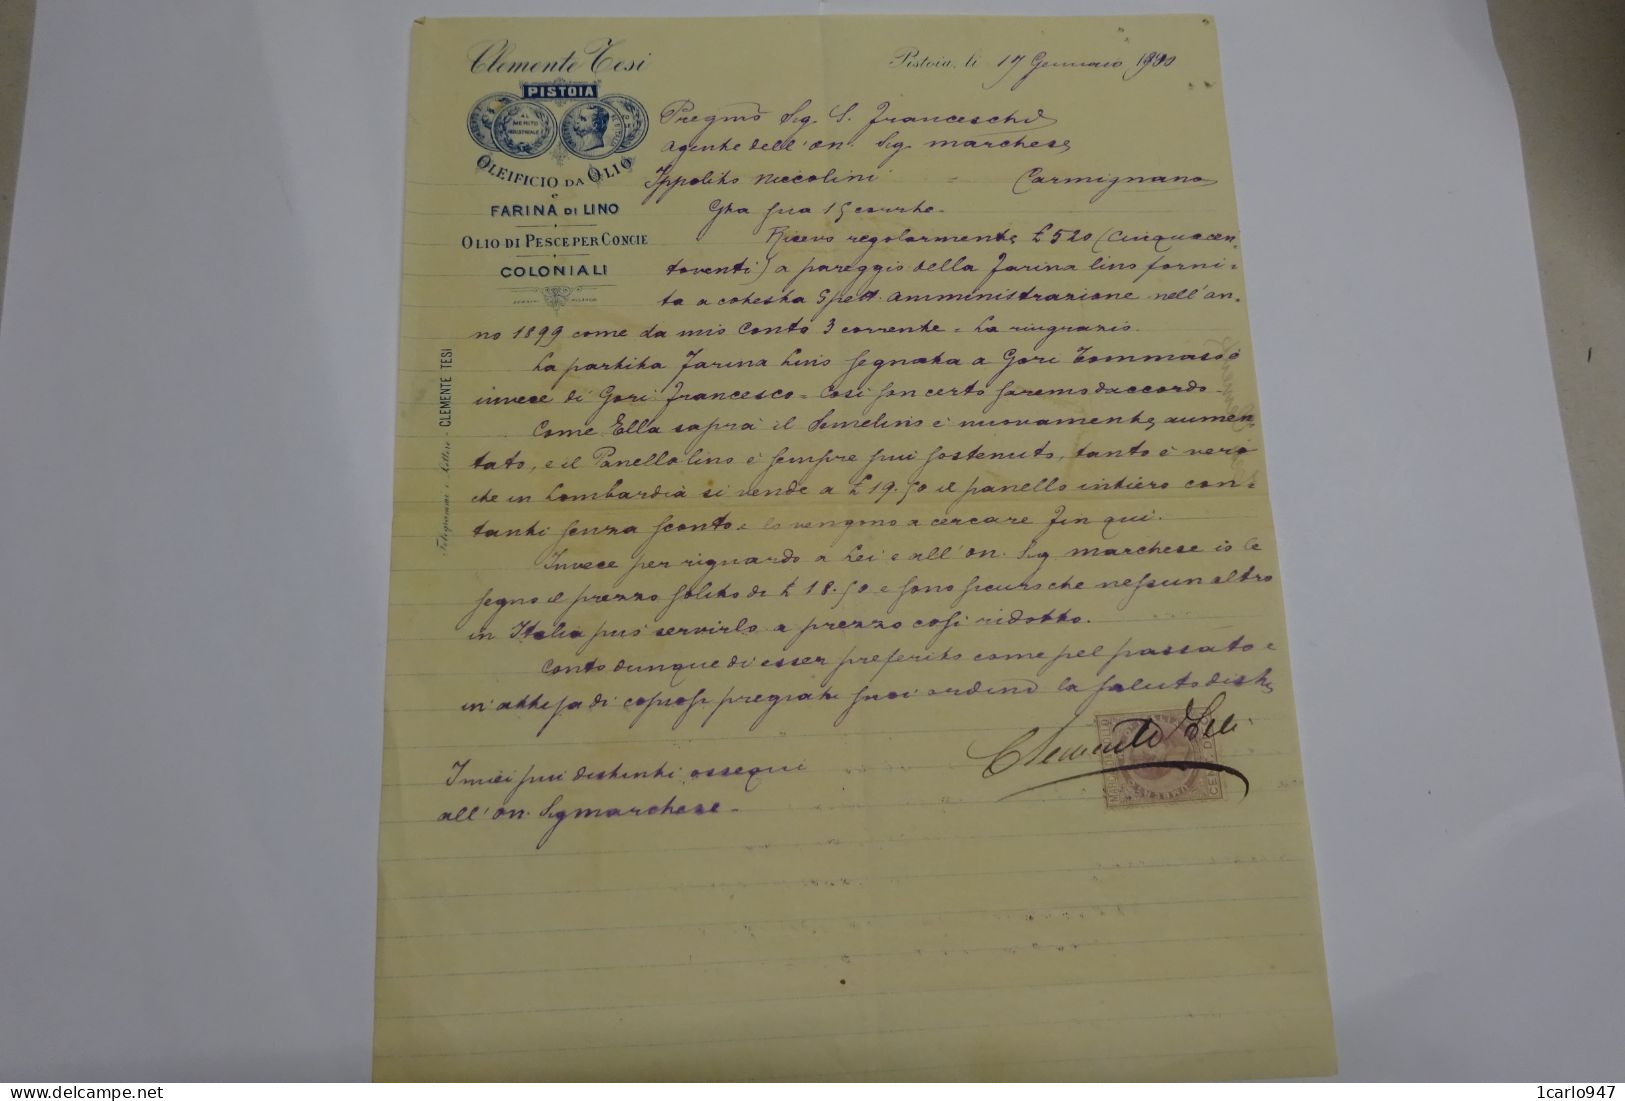 Clemente Tesi
PISTOIA
AL MERITO INDUSTRIALE
OLEIFICIO DA OLIO
e
FARINA DI LINO
OLIO DI PESCE PER CONCIE
COLONIALI
Telegrammi e Lettere - CLEMENTE TESI
Pistoia, li 17 Gennaio 1900
Pregmo Sig. S. Franceschi
agente dell'on. Sig. marchese
Ippolito Niccolini = Carmignano
Gta sua 15 corrte.
Ricevo regolarmente £ 520 (cinquecen-
toventi) a pareggio della farina lino forni-
ta a cotesta Spett. amministrazione nell'an-
no 1899 come da mio conto 3 corrente = La ringrazio.
La partita farina lino segnata a Gori Tommaso è
invece di Gori Francesco = Così son certo saremo daccordo.
Come Ella saprà il Semelino è nuovamente aumen-
tato, e il Panello lino è sempre più sostenuto, tanto è vero
che in Lombardia si vende a £ 19.50 il panello intiero con-
tanti senza sconto e lo vengono a cercare fin qui.
Invece per riguardo a Lei e all'on. Sig marchese io le
segno il prezzo solito di £ 18.50 e sono sicuro che nessun altro
in Italia può servirlo a prezzo così ridotto.
Conto dunque di esser preferito come pel passato e
in attesa di copiosi pregiati suoi ordini la saluto distte
Clemente Tesi
I miei più distinti ossequi
all'on. Sig marchese.
MARCA DA BOLLO
CENT.
1carlo947